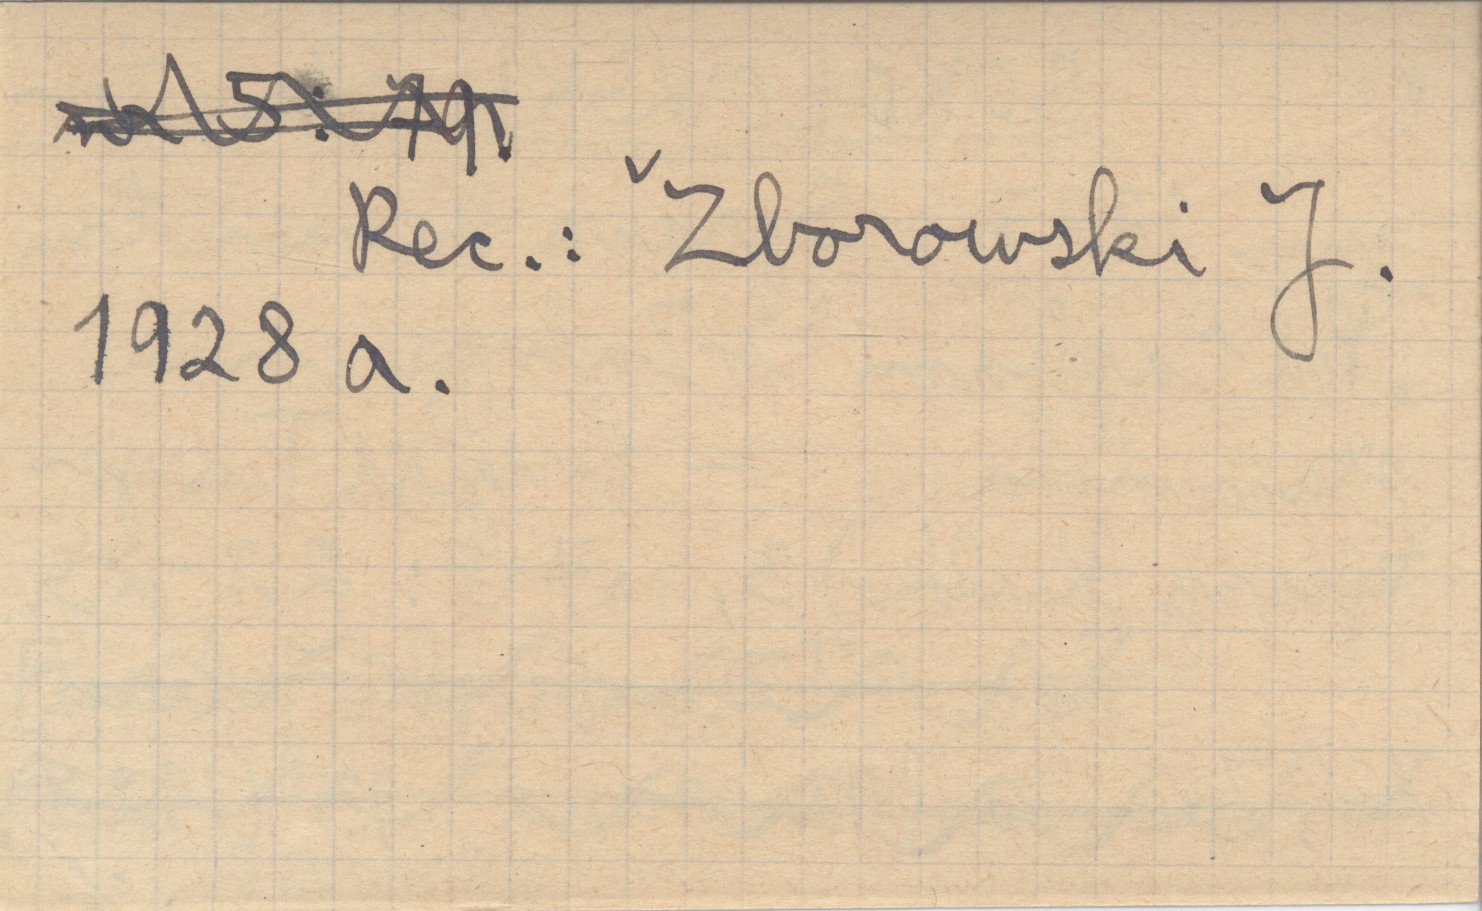 Rec.: Zborowski J.
1928 a.